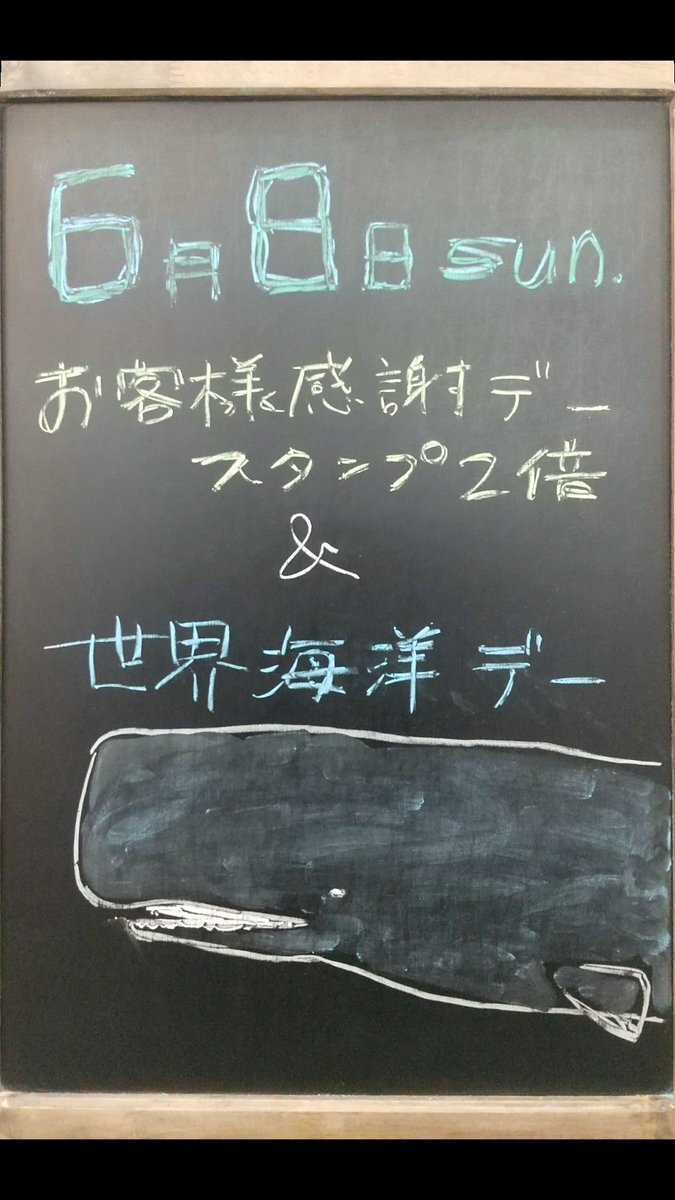 6月8日 sun.
お客様感謝すデー
スタンプ2倍
&
世界海洋デー